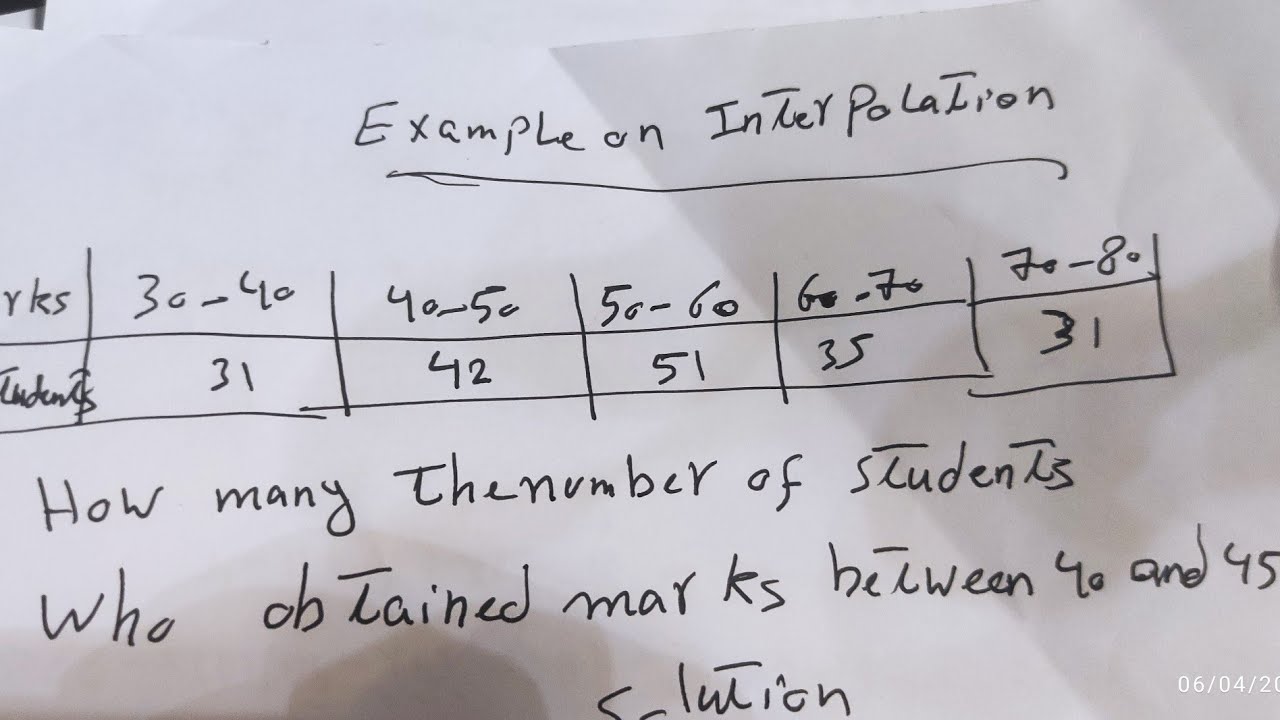 Example on Interpolation
rks 30-40 40-50 50-60 60-70 70-80
tudents 31 42 51 35 31
How many the number of students
Who obtained marks between 40 and 45
Solution
06/04/20